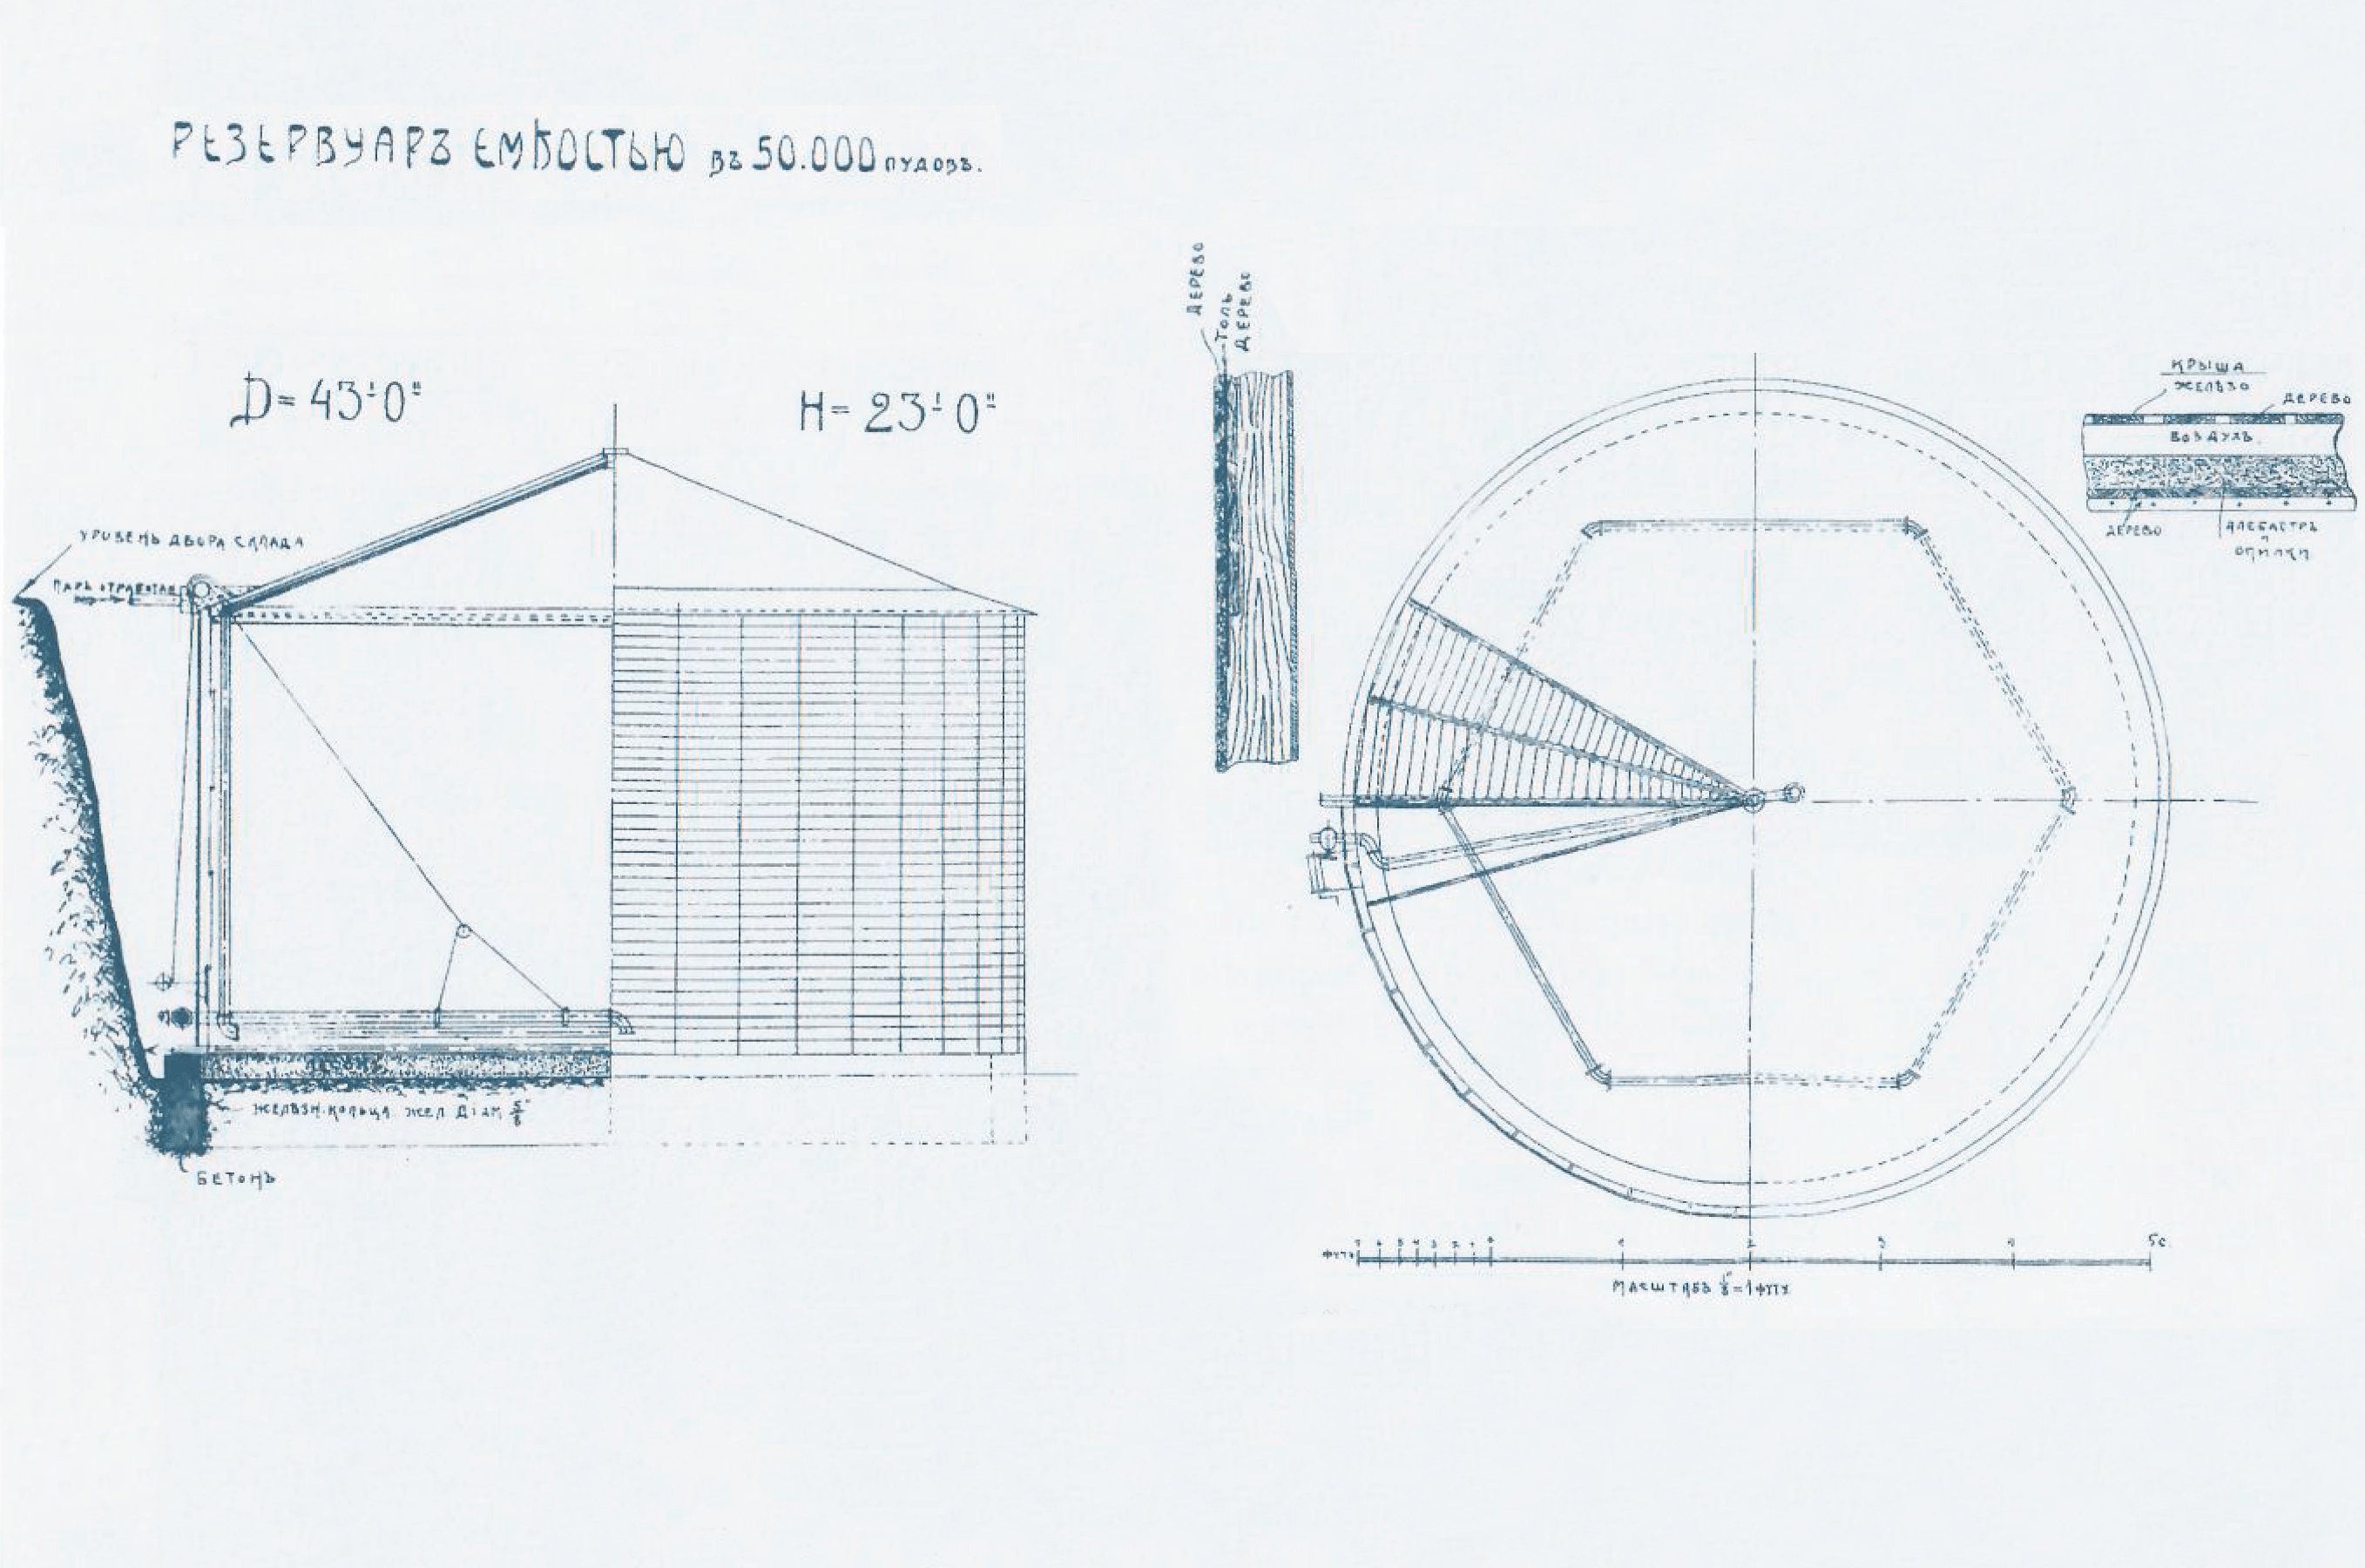 РЕЗЕРВУАРЪ ЕМКОСТЬЮ ВЪ 50.000 ПУДОВЪ.
D= 43'0"
H= 23'0"
УРОВЕНЬ ДВОРА СКЛАДА
ПАРЪ ОТРАБОТАН
ЖЕЛѢЗН. КОЛЬЦА ЖЕЛ ДІАМ 5/8"
БЕТОНЪ
ДЕРЕВО
ТОЛЬ
ДЕРЕВО
КРЫША
ЖЕЛѢЗО
ДЕРЕВО
ВОЗДУХЪ.
ДЕРЕВО
АЛЕБАСТРЪ
И
ОПИЛКИ
ФУТЪ 7 6 5 4 3 2 1 0 1 2 3 4 5с.
МАСШТАБЪ 1/8"=1 ФУТУ